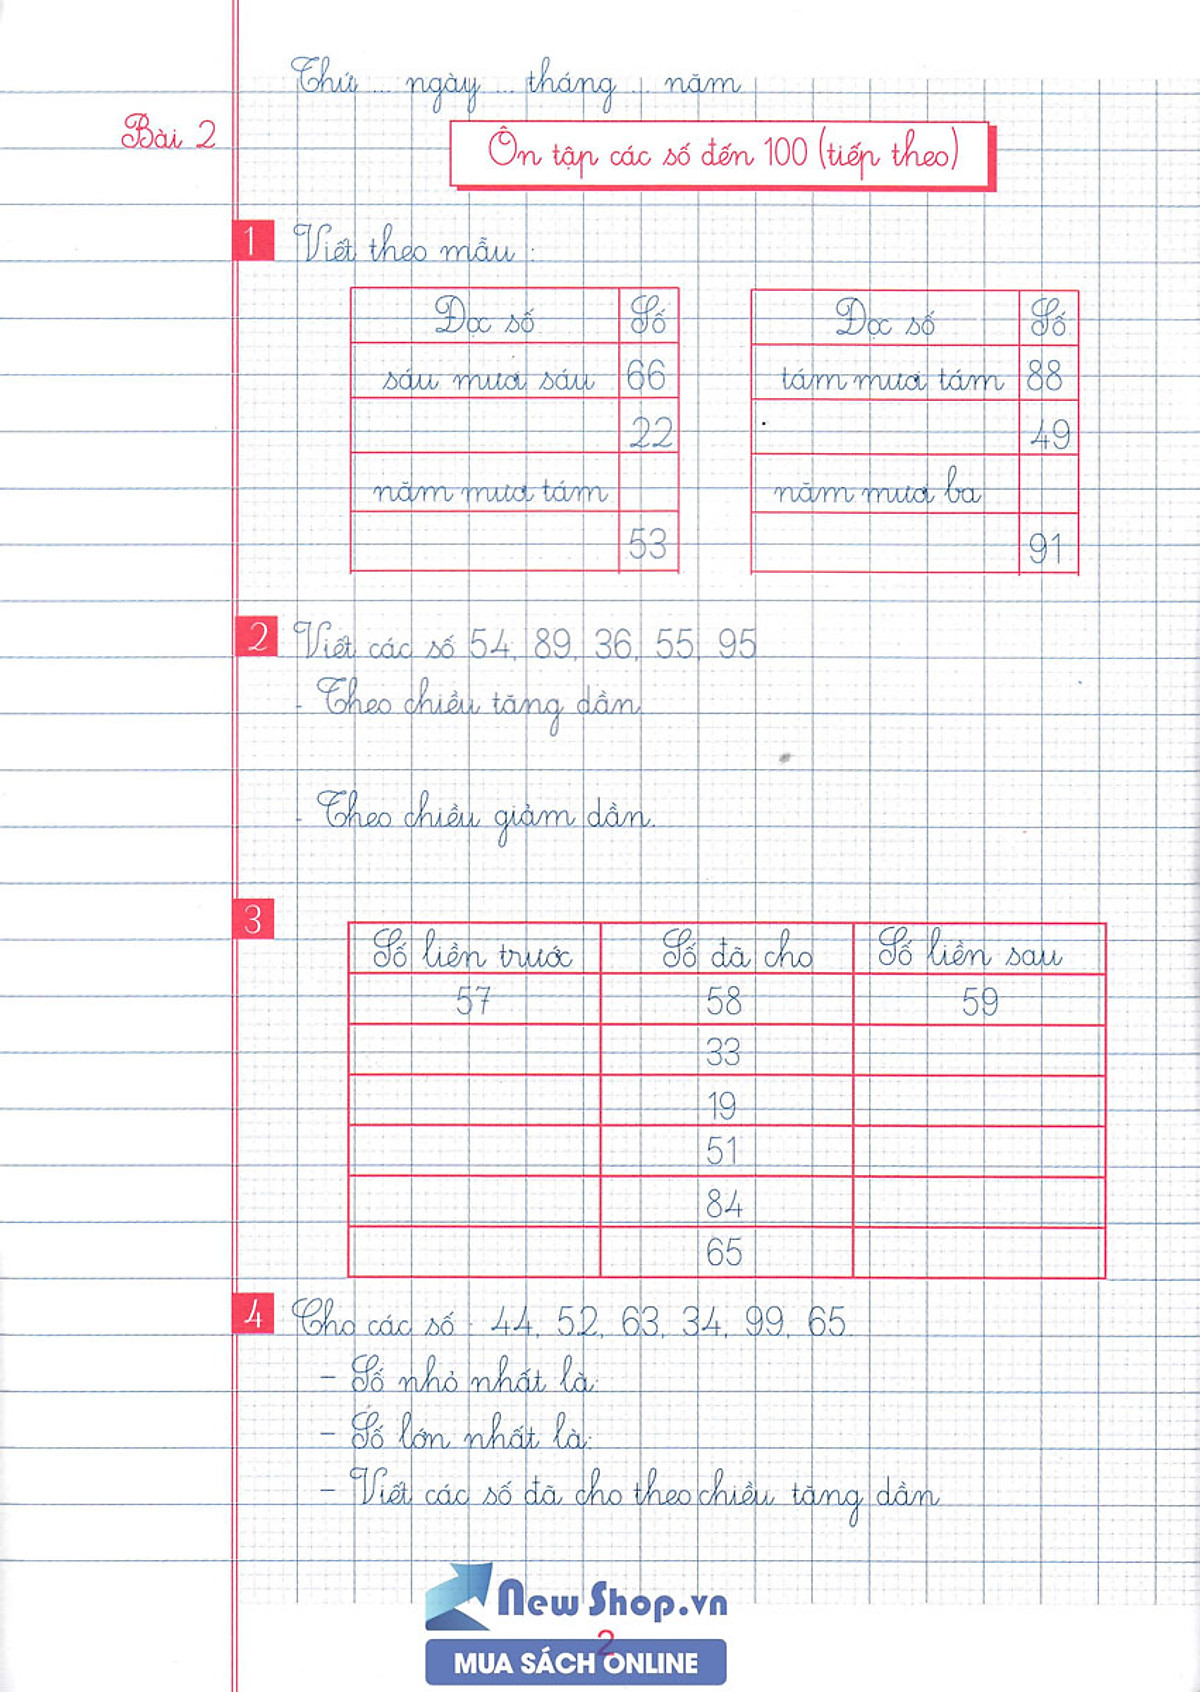 Thứ ... ngày ... tháng ... năm
Bài 2
Ôn tập các số đến 100 (tiếp theo)
1 Viết theo mẫu :
Đọc số Số
sáu mươi sáu 66
22
năm mươi tám
53
Đọc số Số
tám mươi tám 88
49
năm mươi ba
91
2 Viết các số 54, 89, 36, 55, 95
- Theo chiều tăng dần
- Theo chiều giảm dần.
3
Số liền trước Số đã cho Số liền sau
57 58 59
33
19
51
84
65
4 Cho các số : 44, 52, 63, 34, 99, 65.
- Số nhỏ nhất là:
- Số lớn nhất là:
- Viết các số đã cho theo chiều tăng dần
New Shop.vn
2
MUA SÁCH ONLINE